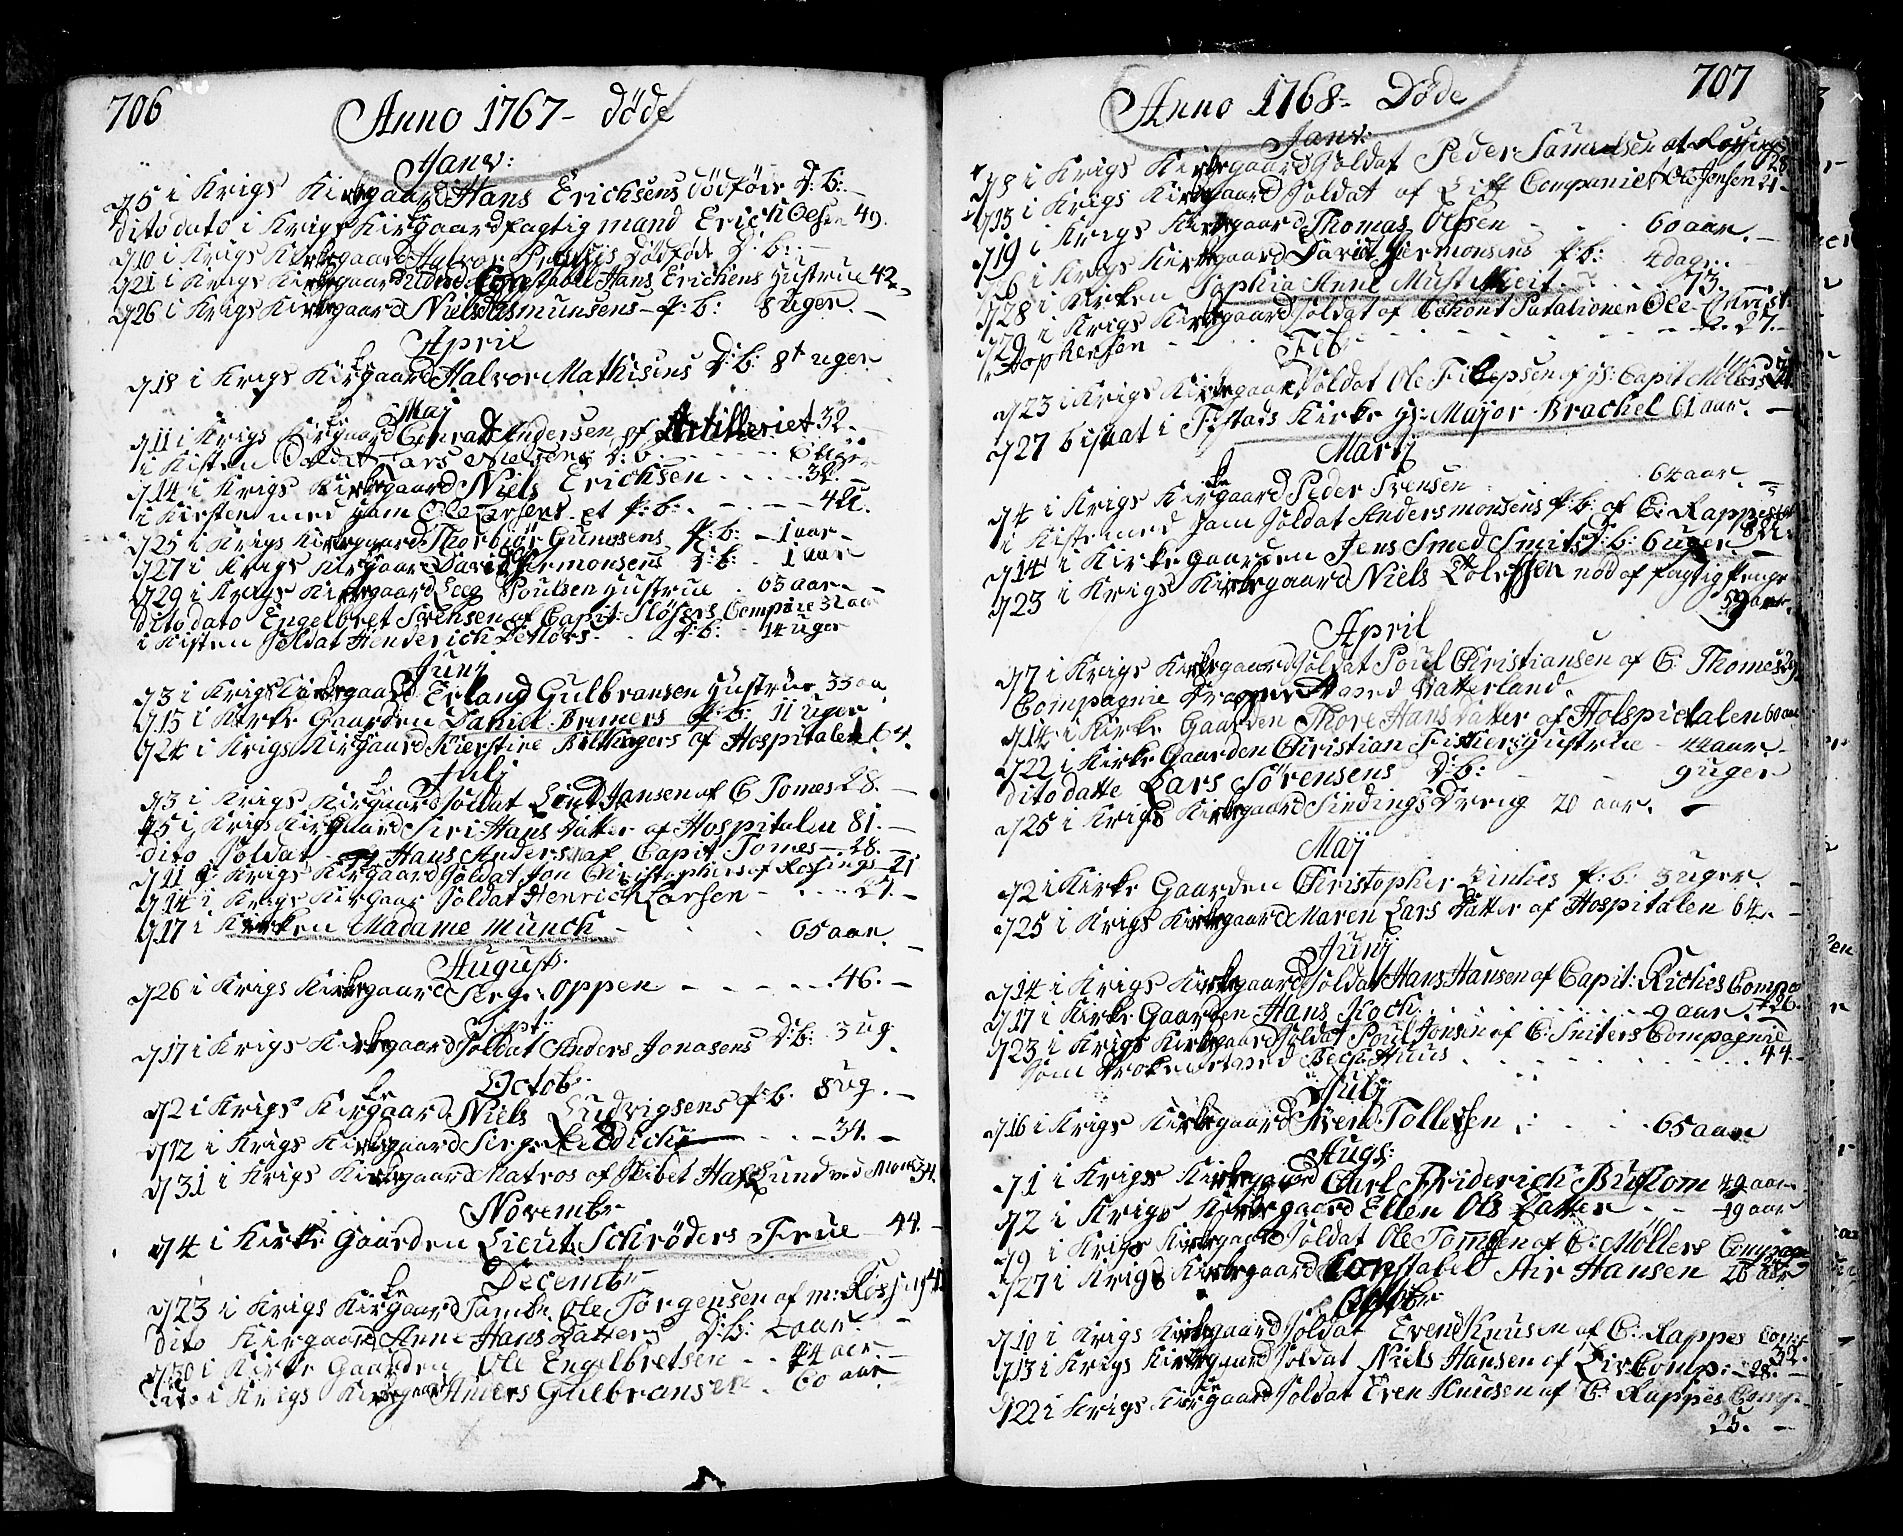 706
Anno 1767- døde
Janv:
d 5 i Krigs Kirkegaard Hans Erichsens dødføde d:b:
dito dato i Krigs Kirgaard fagtig mand Erich Olsen 49.
d 10 i Krigs Kirkegaard Halvor dødføde d:b:
d 21 i Krigs Kirkegaard Constabel Hans Erichens Hustrue 42
d 26 i Krigs Kirkegaard Niels Asmunsens p:b: 8 uger.
April
d 18 i Krigs Kirgaard Halvor Mathisens d:b: 8t uger
Maj
d 11 i Krigs Kirgaard Conrad Andersen af Artilleriet 32.
i Kisten Soldat Lars Nielsens d:b: 6 uger
d 14 i Krigs Kirkegaard Niels Erichsen 38.
i Kisten med ham Ole Larsens et p:b: 4 u.
d 25 i Krigs Kirkegaard Thorbiør Gunnsens p:b: 1 aar
d 27 i Krigs Kirgaard David Hermonsens d:b: 1 aar
d 29 i Krigs Kirkegaard Poulsen Hustrue 65 aar
dito dato Engelbret Svensen af Capit: Sløsers Compnie 32 aar
i Kisten Soldat Henderich Detlørs d:b: 14 uger
Junj
d 3 i Krigs Kirkegaard Erland Gulbransen Hustrue 33 aa
d 15 i Kirke Gaarden Daniel Bremers p:b: 11 uger
d 24 i Krigs Kirgaard Kierstine Biltzingers af Hospitalet 64.
Julj
d 3 i Krigs Kirgaard Soldat Jansen af C Tomes 28.
d 5 i Krigs Kirgaard Siri Hans Datter af Hospitalen 81.
dito Soldat Hans Anders: af Capit Tomes 28.
d 11 i Krigs Kirgaard Soldat Jon Christophers af Rosings 21
d 14 i Krigs Kirgaar Soldat Henrich Larsen 27.
d 17 i Kirken Madame Munch 65 aar.
August:
d 26 i Krigs Kirkegaard Serge: Oppen 46.
Sept:
d 17 i Krigs Kirkegaard Soldat Anders Jonasens d:b: 3 ug
Octob:
d 2 i Krigs Kirgaard Niels Ludvigsens p:b. 8 ug.
d 12 i Krigs Kirkegaard Serge 31.
d 31 i Krigs Kirkegaard Matros af Skibet Hafslund ved Mons 34.
Novembr
d 4 i Kirke Gaarden Lieut: Schrøders Frue 44.
Decembr
d 23 i Krigs Kirgaard Tamb: Ole Jørgensen af m: Rossings
dito Kirgaard Anne Hans Datters d:b: 2 aar.
d 30 i Kirke Gaarden Ole Engelbretsen 44 aer.
dito i Krigs Kirgaar Anders Gulbransen 60 aar
707
Anno 1768- Døde
Janv:
d 8 i Krigs Kirkegaard Soldat Peder Samuelsen af Rossings 28
d 15 i Krigs Kirkegaard Soldat af Liff Companiet Ole Jonsen 21
d 19 i Krigs Kirkegaard Thomas Olsen 60 aar.
d 26 i Krigs Kirkegaard David Hermonsens p:b: 4 dage.
d 28 i Kirken Sophia Anne Must 73.
d 29 i Krigs Kirkegaard Soldat af Ole Christ-
stophersen 27.
Feb:
d 23 i Krigs Kirkegaar Soldat Ole Filepsen af H: Capit Møllers
d 27 bisaat i Tistads Kirke H: Major Brachel 61 aar.
Martj
d 4 i Krigs Kirgaard Peder Svensen 64 aar.
i Kisten med ham Soldat Anders monsens p:b: af C: Rappes
d 14 i Kirke gaarden Jens Smed Smits d:b: 6 uger
d 23 i Krigs Kirkegaard Niels nød af fagtig penge
59 aar
April
d 7 i Krigs Kirkegaard Soldat Poul Christiansen af C: Thomes 29
Compagnie med Vatterland
d 14 i Kirke Gaarden Thore Hans datter af Holspictalen 60 aar
d 22 i Kirke Gaarden Christian Fischers Hustrue 44 aar
dito datte Lars Sørensens d:b: 9 uger
d 25 i Krigs Kirkegaard Sindings Dreng 20 aar.
Maj
d 2 i Kirke Gaarden Christopher Linties p:b: 3 uger.
d 25 i Krigs Kirkegaard Maren Lars Datter af Hospitalen 64.
Junj
d 14 i Krigs Kirkegaard Soldat Hans Hansen af Capit: Riches Compa
26.
d 17 i Kirke Gaarden Hans Koch 9 aar.
d 23 i Krigs Kirkegaard Soldat Poul Jonsen af C: Sniters Compagnie
som 44
Julj
d 16 i Krigs Kirkegaard Svend Tollefsen 65 aar
Augs:
d 1 i Krigs Kirkegaard Carl Friderich 49 aar
d 2 i Krigs Kirkegaard Ellen Ols Datter 49 aar
d 9 i Krigs Kirkegaard Soldat Ole Tomsen af C: Møllers Compagn
d 27 i Krigs Kirkegaard Constabel Air Hansen 28 aar
Septbr
d 10 i Krigs Kirkegaard Soldat Even Knusen af C: Rappes Comp
32.
d 13 i Krigs Kirkegaard Soldat Niels Hansen af Lifcomp: 28.
d 22 i Krigs Kirgaard Soldat Even Knudsen af C: Rappes Comp.
25.